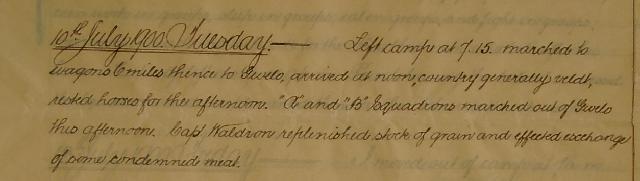 10th July, 1900. Tuesday.— Left camp at 7.15. marched to
wagons 6 miles thence to Gwelo, arrived at noon, country generally veldt,
rested horses for the afternoon. "A" and "B" Squadrons marched out of Gwelo
this afternoon. Capt Waldron replenished stock of grain and effected exchange
of some condemned meal.